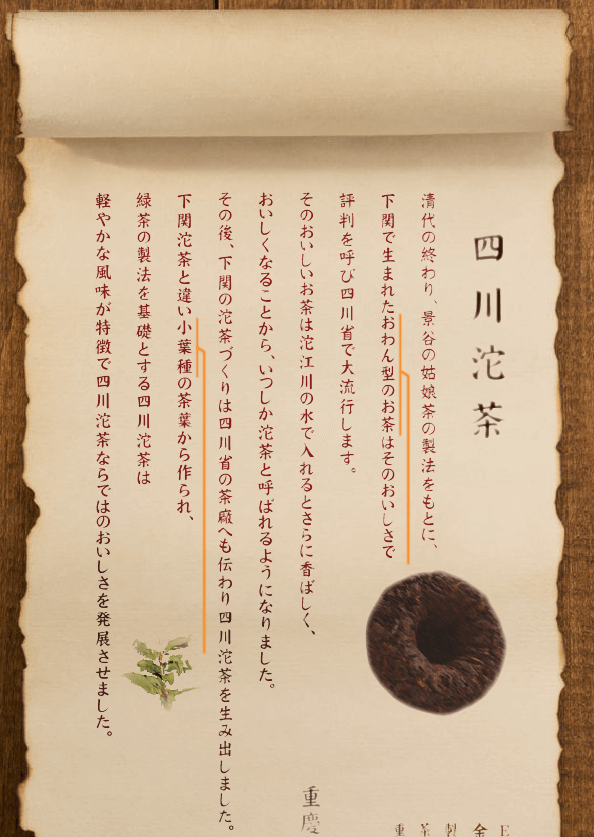 四川沱茶
清代の終わり、景谷の姑娘茶の製法をもとに、
下関で生まれたおわん型のお茶はそのおいしさで
評判を呼び四川省で大流行します。
そのおいしいお茶は沱江川の水で入れるとさらに香ばしく、
おいしくなることから、いつしか沱茶と呼ばれるようになりました。
その後、下関の沱茶づくりは四川省の茶廠へも伝わり四川沱茶を生み出しました。
下関沱茶と違い小葉種の茶葉から作られ、
緑茶の製法を基礎とする四川沱茶は
軽やかな風味が特徴で四川沱茶ならではのおいしさを発展させました。
重慶